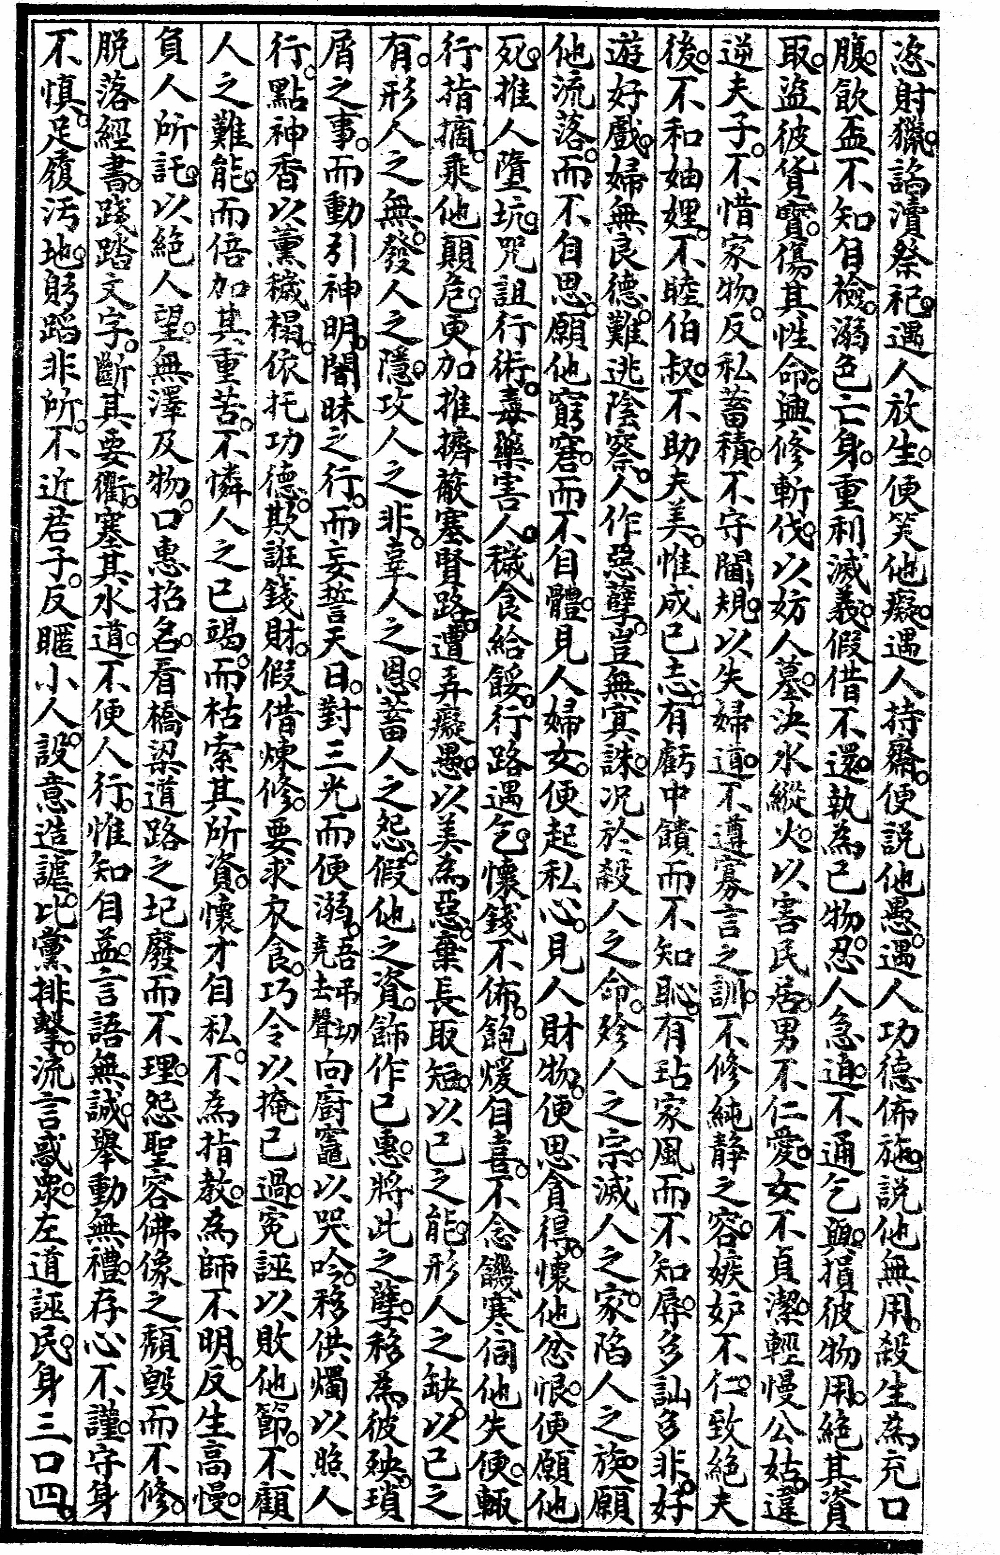 恣射獵諂瀆祭祀遇人放生便笑他癡遇人持齋便説他愚遇人功德佈施説他無用殺生為充口
腹飲盃不知自檢溺色亡身重利滅義假借不還執為己物忍人急迫不通乞與損彼物用絕其資
取盜彼貨寶傷其性命興修斬伐以妨人墓決水縱火以害民居男不仁愛女不貞潔輕慢公姑違
逆夫子不惜家物反私蓄積不守閫規以失婦道不遵寡言之訓不修純靜之容嫉妒不仁致絕夫
後不和妯娌不睦伯叔不助夫美惟成己志有虧中饋而不知恥有玷家風而不知辱多訕多非好
遊好戲婦無良德難逃陰察人作惡孽豈無冥誅况於殺人之命殄人之宗滅人之家陷人之族願
他流落而不自思願他窮窘而不自體見人婦女便起私心見人財物便思貪得懷他忿恨便願他
死推人墮坑咒詛行術毒藥害人穢食給餒行路遇乞懷錢不佈飽煖自喜不念饑寒伺他失便輒
行指摘乘他顛危更加推擠蔽塞賢路遭弄癡愚以美為惡棄長取短以己之能形人之缺以己之
有形人之無發人之隱攻人之非辜人之恩蓄人之怨假他之資飾作己惠將此之孽移為彼殃瑣
屑之事而動引神明闇昧之行而妄誓天日對三光而便溺堯去聲吾吊切向廚竈以哭吟移供燭以照人
行點神香以薰穢榻依托功德欺誑錢財假借煉修要求衣食巧令以掩己過寃誣以敗他節不顧
人之難能而倍加其重苦不憐人之已竭而枯索其所資懷才自私不為指教為師不明反生高慢
負人所託以絕人望無澤及物口惠招名看橋梁道路之圮廢而不理怨聖容佛像之頹毀而不修
脱落經書踐踏文字斷其要衢塞其水道不便人行惟知自益言語無誠舉動無禮存心不謹守身
不慎足履汚地躬蹈非所不近君子反暱小人設意造謔比黨排擊流言惑眾左道誣民身三口四